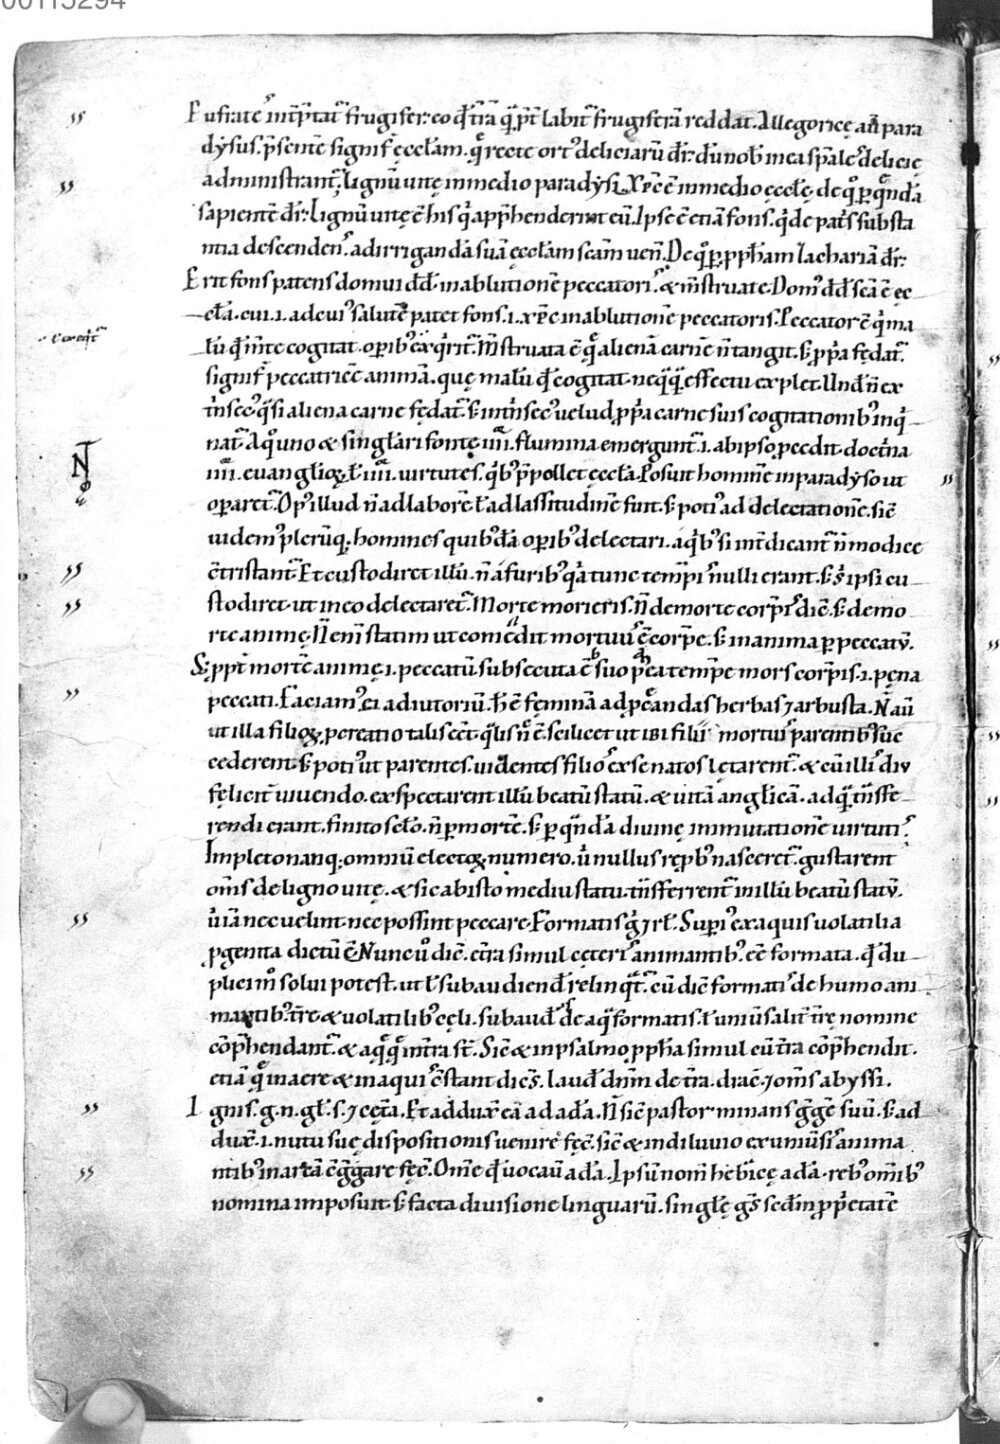 00115294
Eufrates int̄p̄tat̄ frugifer. eo qđ t̄rā q̄ p̄t̄ labit̄ frugiferā reddat. Allegoricę aut̄ para
dẏsus. p̄sentē signif̄ ęcclam̄. quę recte ort᷒ deliciarū dr̄. dū nob᷒ inea sp̄ales delicię
administrant̄. Lignū uitę inmedio paradẏsi. Xp̄c ē inmedio ęcclę. de quo p quendā
sapientē dr̄: Lignū uitę ē his qui app̄henderint eū. Ipse ē etiā fons. qui de patris substa
ntia descendens. adirrigandā suā ęcclam̄ scām uenit. De quo p pph̄am Zachariā dr̄:
Erit fons patens domui dd̄. inablutionē peccatoris. & m̄struatę. Dom᷒ dd̄ scā ē ęc
cła. cui .i. ad cui᷒ salutē patet fons .i. xp̄c inablutionē peccatoris. Peccator ē qui ma
lū qđ m̄te cogitat. opib᷒ exquirit. M̄struata ē quę alienā carnē n̄ tangit. s; ppa fędat̄.
ł exeq̄t̄
signif̄ peccatricē animā. quę malū qđ cogitat. neqq̄ effectu explet. Unđ n̄ ex
t̄nsec᷒ q̄si aliena carne fędat̄. s; int̄nsec᷒ uelud ppa carne suis cogitationib᷒ inqui
nat̄. A quo uno & singlari fonte .iiii. flumina emergunt̄ .i. abipso pcedit doct̄na
N
.iiii. euangliogꝝ. ł .iiii. uirtutes. quib᷒ p̄pollet ęccła. Posuit hominē inparadẏso ut
opararet̄. Op᷒ illud n̄ adlaborē ł adlassitudinē fuit. s; poti᷒ ad delectationē. sic̄
uidem᷒ plerūq; homines quib᷒dā opib᷒ delectari. a quib᷒ si int̄dicant̄ n̄ modicę
c̄tristant̄. Et custodiret illū. n̄ a furib᷒ quia tunc tempis nulli erant. s; sibi ipsi cu
stodiret. ut in eo delectaret̄. Morte morieris. n̄ demorte corpis dic̄. s; demo
rte animę. N̄ eni statim ut comedit mortuus ē corpe. s; inanima p peccatū.
S; ppt̄ mortē animę .i. peccatū. subsecuta ē suo postea tempe mors corpis .i. pęna
peccati. Faciam᷒ ei adiutoriū. h̄ ē feminā ad pcreandas herbas ⁊ arbusta. N̄ aū
ut illa filioꝝ pcreatio talis eēt. qualis n̄c ē. scilicet ut ibi filii mortuis parentib᷒ suc
cederent. s; poti᷒ ut parentes. uidentes filios ex se natos lętarent̄. & cū illis diu
feliciter uiuendo. exspectarent illū beatū statū. & uitā anglicā. ad quā t̄nsfe
rendi erant. finito sclo. n̄ p mortē. s; p quandā diuinę immutationē uirtutis.
Impleto nanq; omniū electoꝝ numero. ū nullus rep̄b᷒ nasceret̄. gustarent
om̄s deligno uitę. & sic abisto mediu statu. t̄nsferrent̄ inillū beatū statū.
ū iā nec uelint nec possint peccare. Formatis g̊ ⁊ rł. Supi᷒ exaquis uolatilia
pgenita dictū ē. Nunc ū dic̄. et̄ra simul cęteris animantib᷒ eē formata. qđ du
plici m̄ solui potest. ut ł subaudiendū relinqt̄. cū dic̄ formatis de humo ani
mantib᷒ t̄rę & uolatilib᷒ cęli. subauđ de aqua formatis. ł uniūsalit̄ t̄rę nomine
cōp̄hendant̄. & aquę quę int̄ra st̄. Sic̄ & inpsalmo ppha simul cū t̄ra cōp̄hendit.
etiā quę inaere & inaquis c̄stant dicens. Lauđ dn̄m de t̄ra. drac̄. ⁊ om̄s abyssi.
Ignis. g. n. gł. s. ⁊ cęt̄a. Et adduxit eā ad adā. N̄ sic̄ pastor minans gregē suū. s; ad
duxit .i. nutu suę dispositionis uenire fec̄. sic̄ & indiluuio exuniūsis anima
ntib᷒ inarcā c̄ggare fec̄. Om̄e qđ uocauit adā. Ipsū nom̄ hebicę adā. reb᷒ omib᷒
nomina imposuit. s; facta diuisione linguarū. singlę gens sedm̄ ppetatē